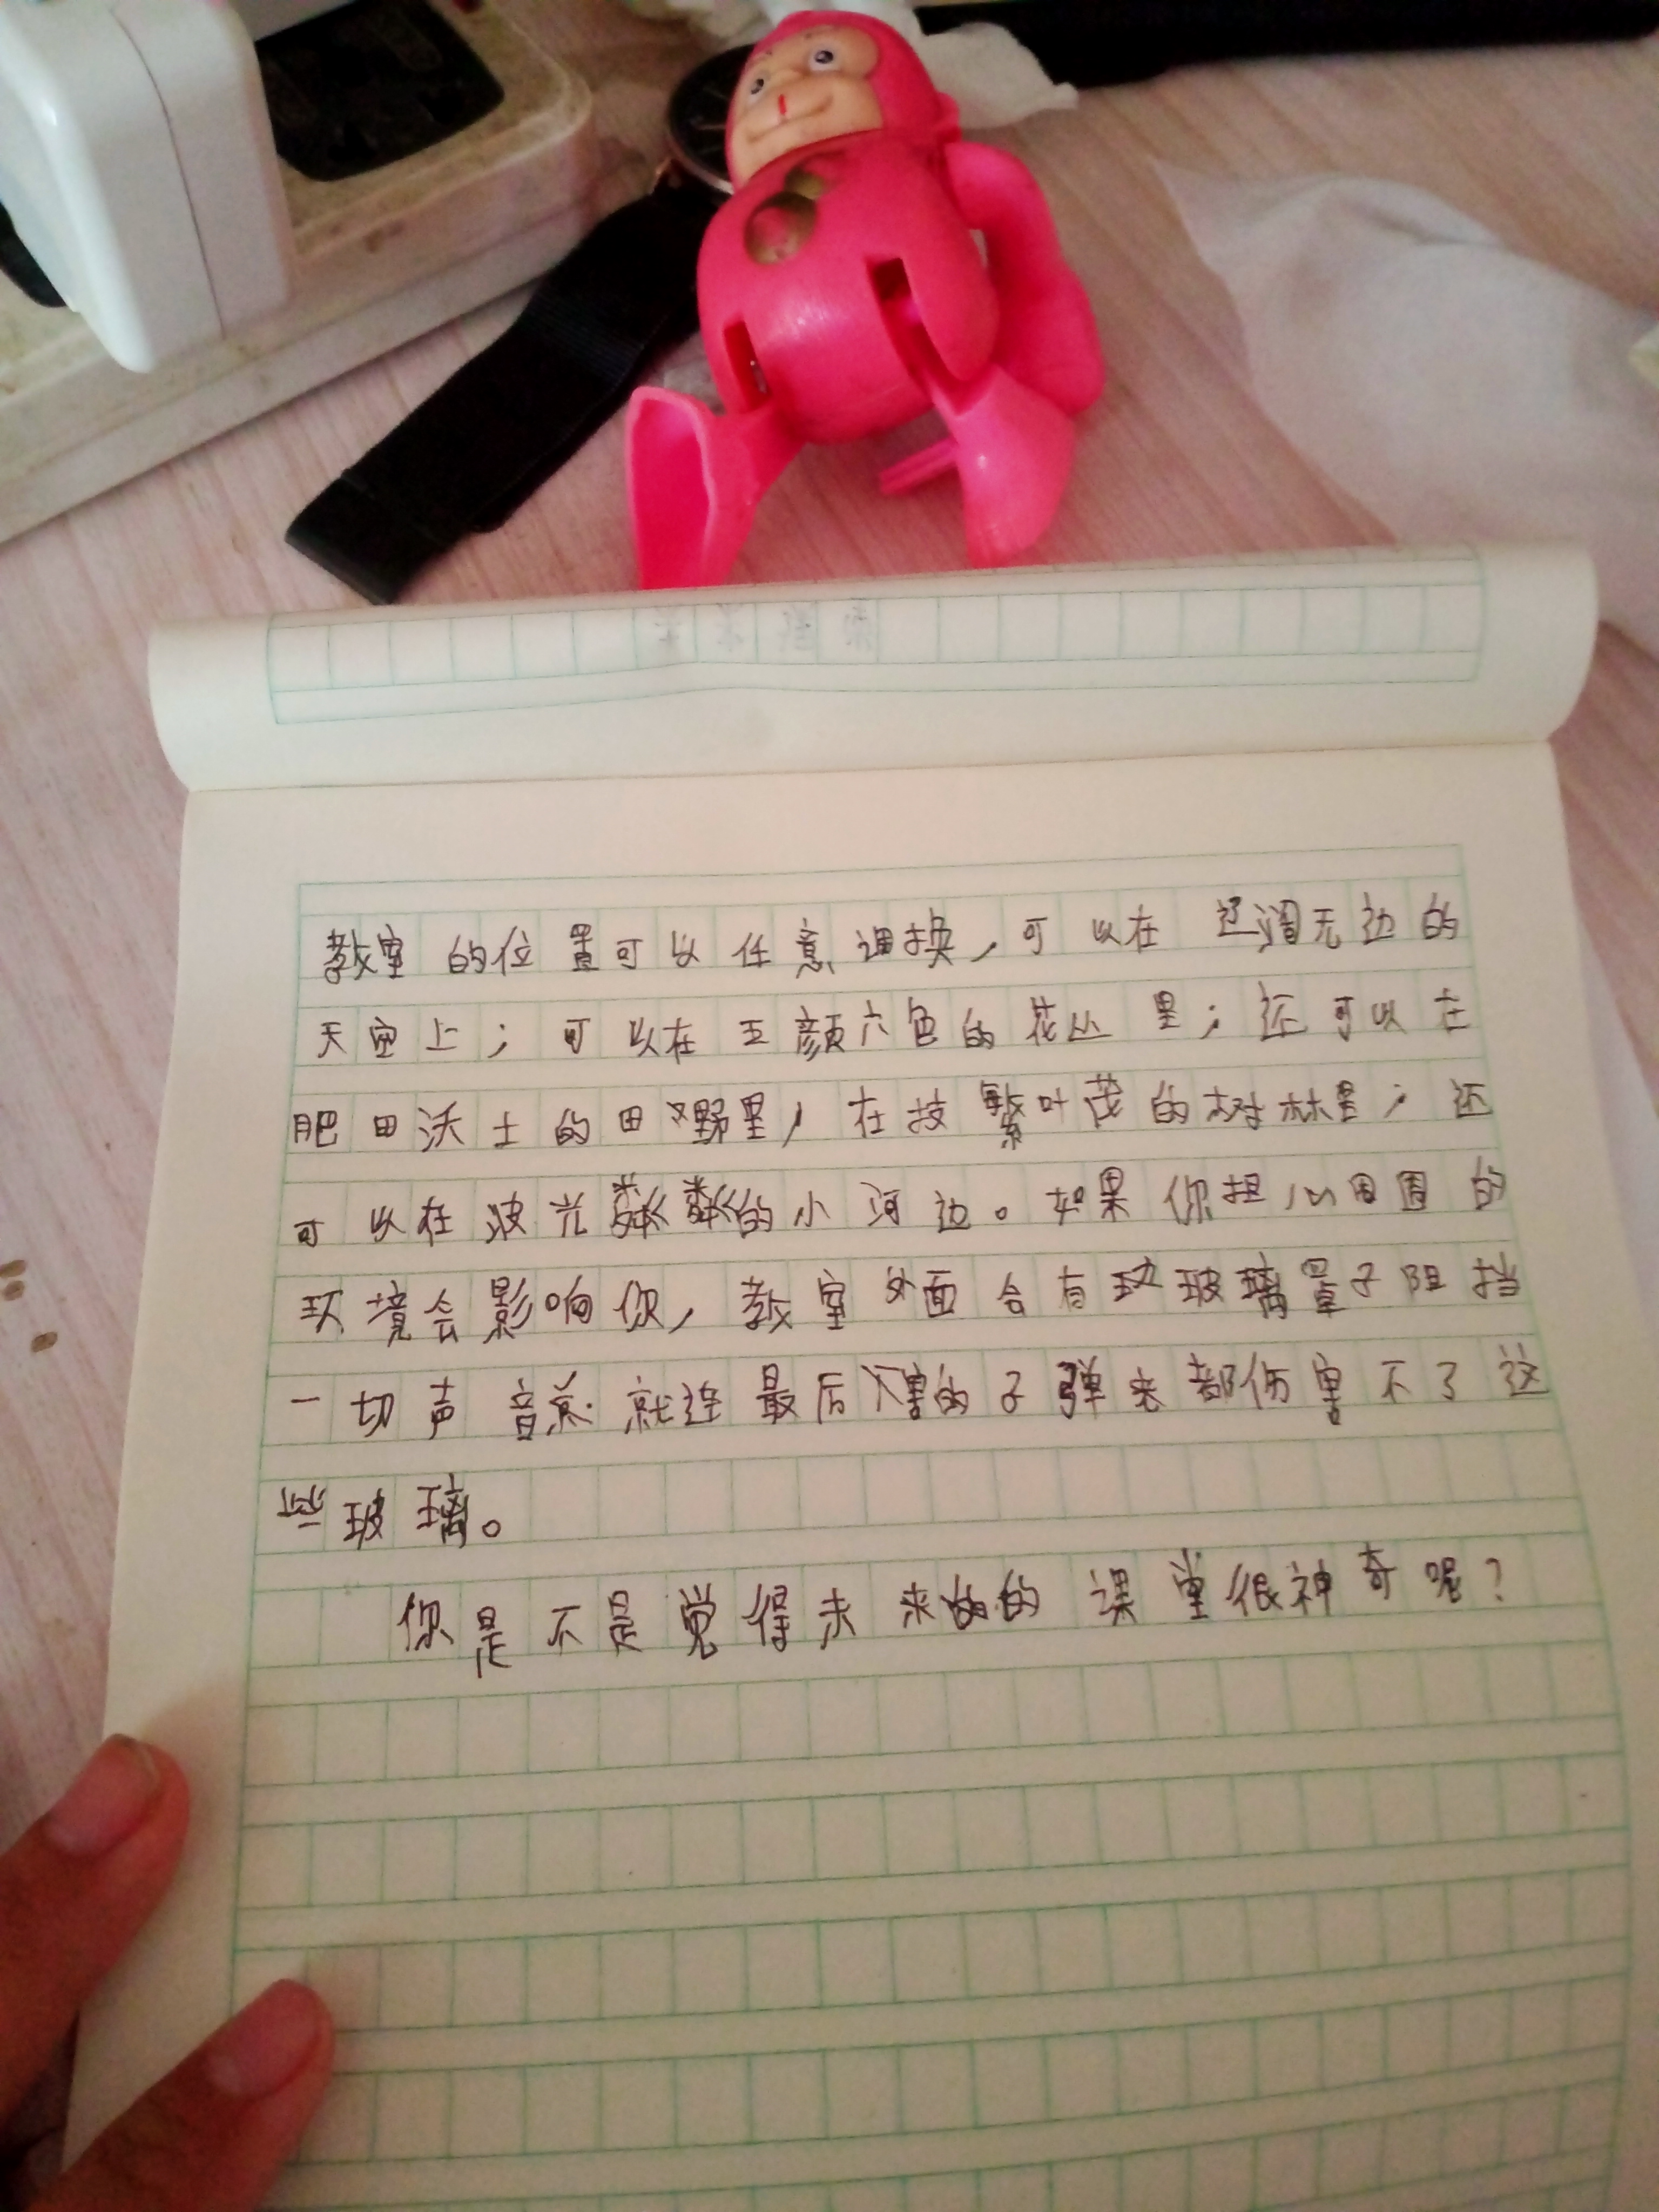 教室的位置可以任意调换，可以在辽阔无边的
天空上；可以在五颜六色的花丛里；还可以在
肥田沃土的田野里，在枝繁叶茂的树林里；还
可以在波光粼粼的小河边。如果你担心周围的
环境会影响你，教室外面会有玻璃罩子阻挡
一切声音 就连最后 害的子弹来都伤害不了这
些玻璃。
你是不是觉得未来的课堂很神奇呢？